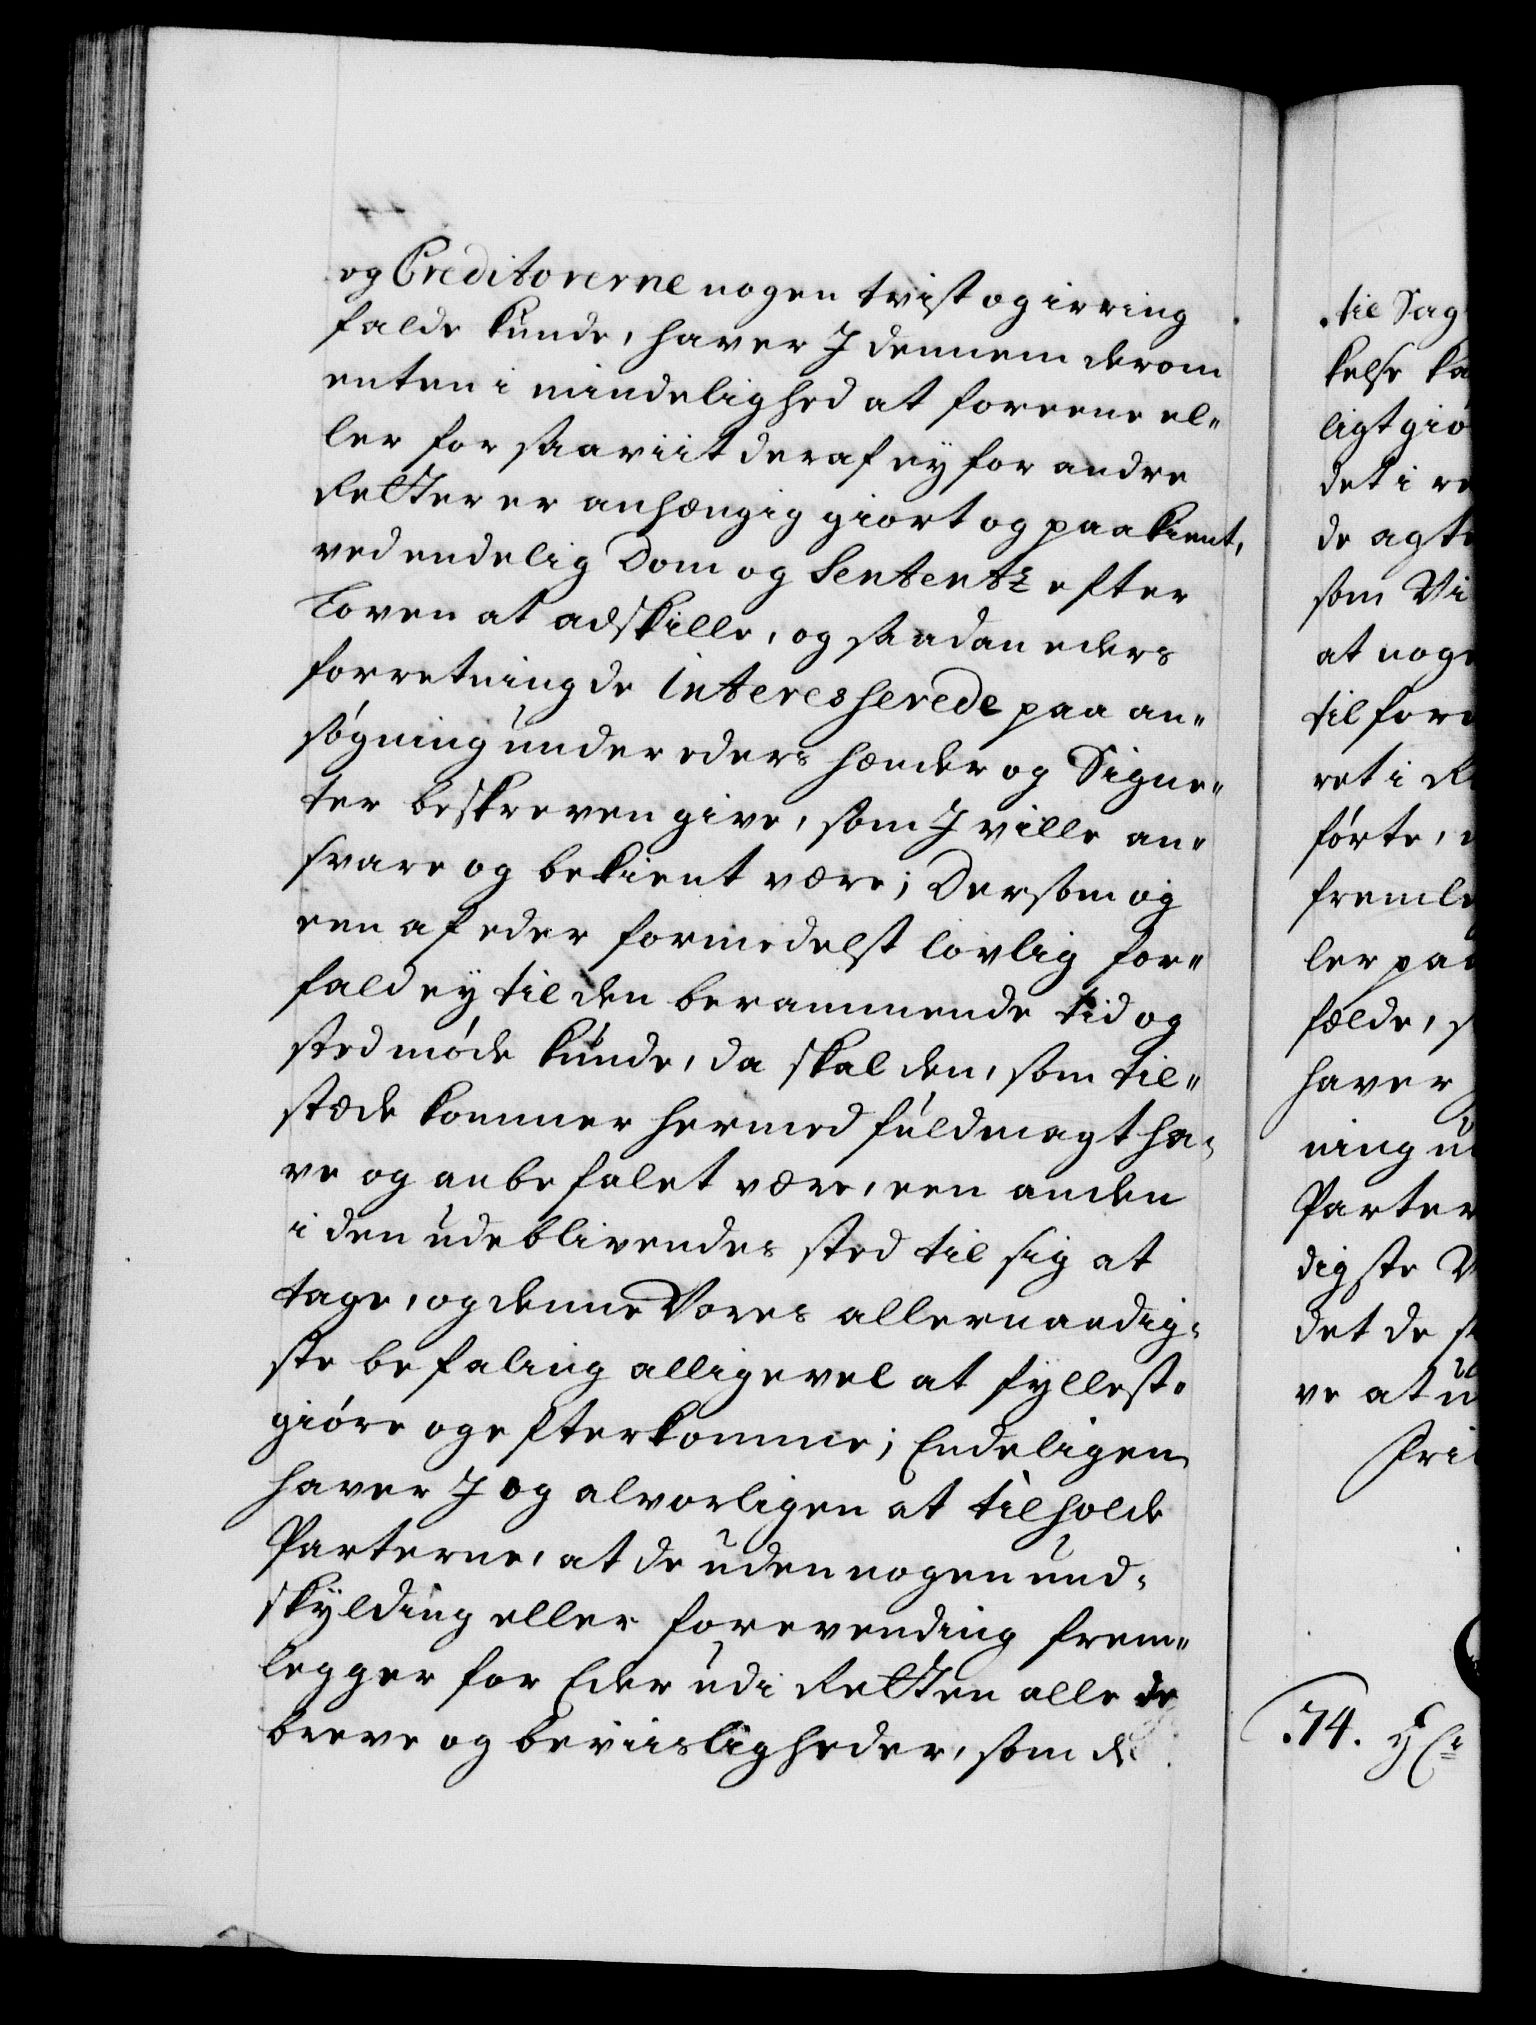 og Creditorerne nogen tvist og irring
falde kunde, haver I dennem derom
enten i mindelighed at foreene el„
ler for saaviit deraf ey for andre
Retter er anhængig giort og paakient,
ved endelig Dom og Sententz efter
Loven at adskille, og saadan eders
forretning de interesserede paa an„
søgning under eders hænder og Signe„
ter beskreven give, som I ville an„
svare og bekient være; Dersom og
een af eder formedelst lovlig for„
fald ey til den berammende tid og
sted møde kunde, da skal den, som til„
stæde kommer hermed fuldmagt ha„
ve og anbefalet være, een anden
i den udeblivendes sted til sig at
tage, og denne Vores allernaadig„
ste befaling alligevel at fyllest„
giøre og efterkomme; Endeligen
haver I og alvorligen at tilholde
Parterne, at de uden nogen und„
skylding eller forevending frem„
legger for Eder udi Retten alle de
breve og beviisligheder, som de
til Sag
kelse ka
ligt giø
det i re
de agte
som Vi
at noge
til for
ret i Re
førte,
fremle
ler paa
fælde, s
haver
ning u
Parter
digste V
det de s
ve at u
Fri
74.